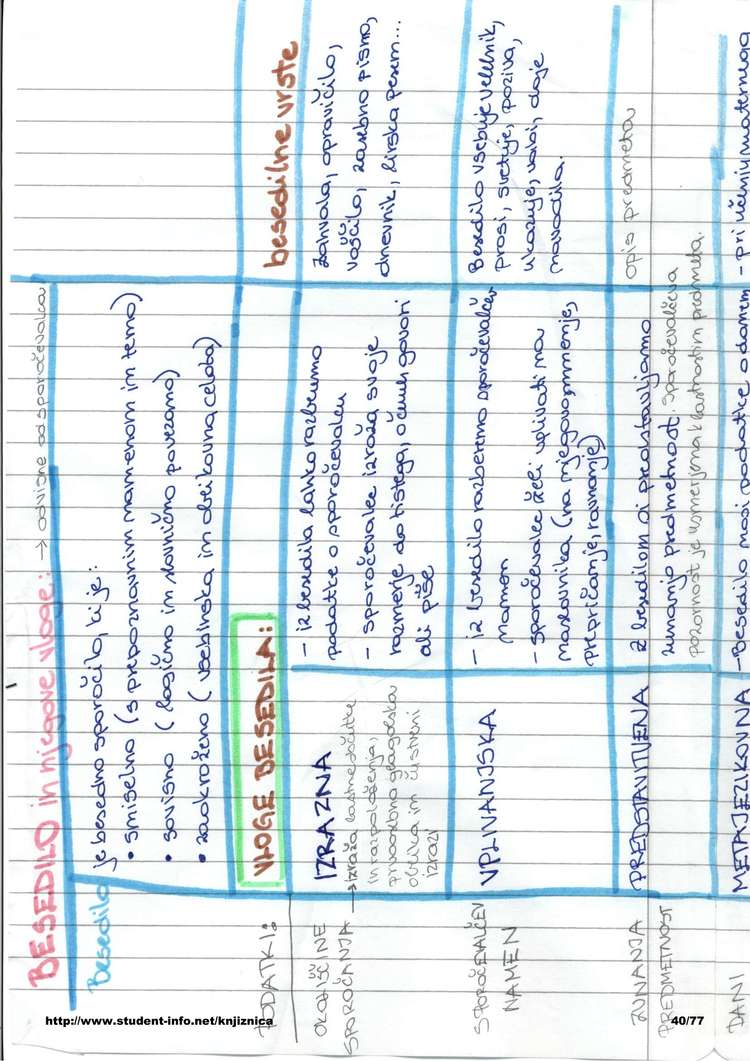 BESEDILO in njegove vloge: → odvisne od sporočevalca
Besedilo je besedno sporočilo, ki je:
• smiselno (s prepoznavnim namenom in temo)
• sovisno (logično in slovnično povezano)
• zaokroženo (vsebinska in oblikovna celota)
PODATKI:
VLOGE BESEDILA:
besedilne vrste
OKOLIŠČINE
SPOROČANJA
IZRAZNA
→ izraža lastne občutke
in razpoloženja,
prvoosebna glagolska
oblika in čustveni
izrazi
– iz besedila lahko razberemo
podatke o sporočevalcu
– sporočevalec izraža svoje
razmerje do tistega, o čemer govori
ali piše
zahvala, opravičilo,
voščilo, zasebno pismo,
dnevnik, lirska pesem...
SPOROČEVALČEV
NAMEN
VPLIVANJSKA
– iz besedila razberemo sporočevalčev
namen
– sporočevalec želi vplivati na
naslovnika (na njegovo mnenje,
prepričanje, ravnanje)
Besedilo vsebuje velelnik,
prosi, svetuje, poziva,
ukazuje, vabi, daje
navodila.
ZUNANJA
PREDMETNOST
PREDSTAVITVENA
z besedilom si predstavljamo
zunanjo predmetnost. Sporočevalčeva
pozornost je usmerjena k lastnostim predmeta.
opis predmeta
DANI
METAJEZIKOVNA
– Besedilo nosi podatke o danem
– pri učenju maternega
http://www.student-info.net/knjiznica
40/77